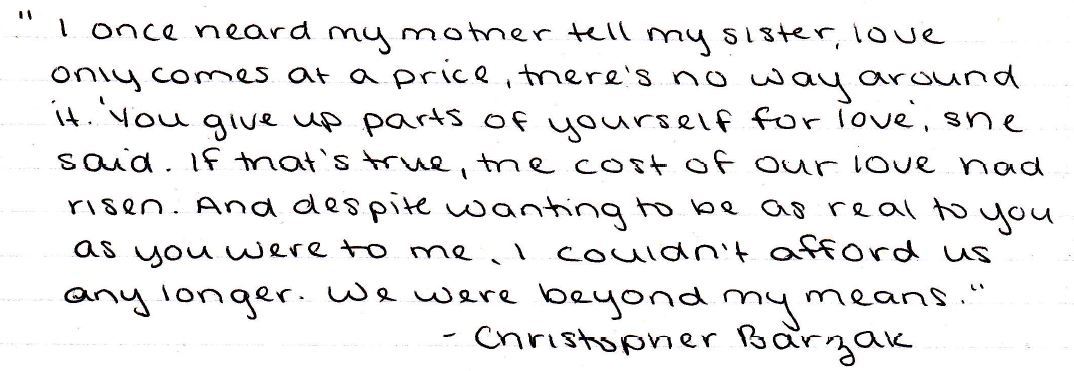 " I once heard my mother tell my sister, love
only comes at a price, there's no way around
it. 'You give up parts of yourself for love', she
said. If that's true, the cost of our love had
risen. And despite wanting to be as real to you
as you were to me, I couldn't afford us
any longer. We were beyond my means."
- Christopher Barzak